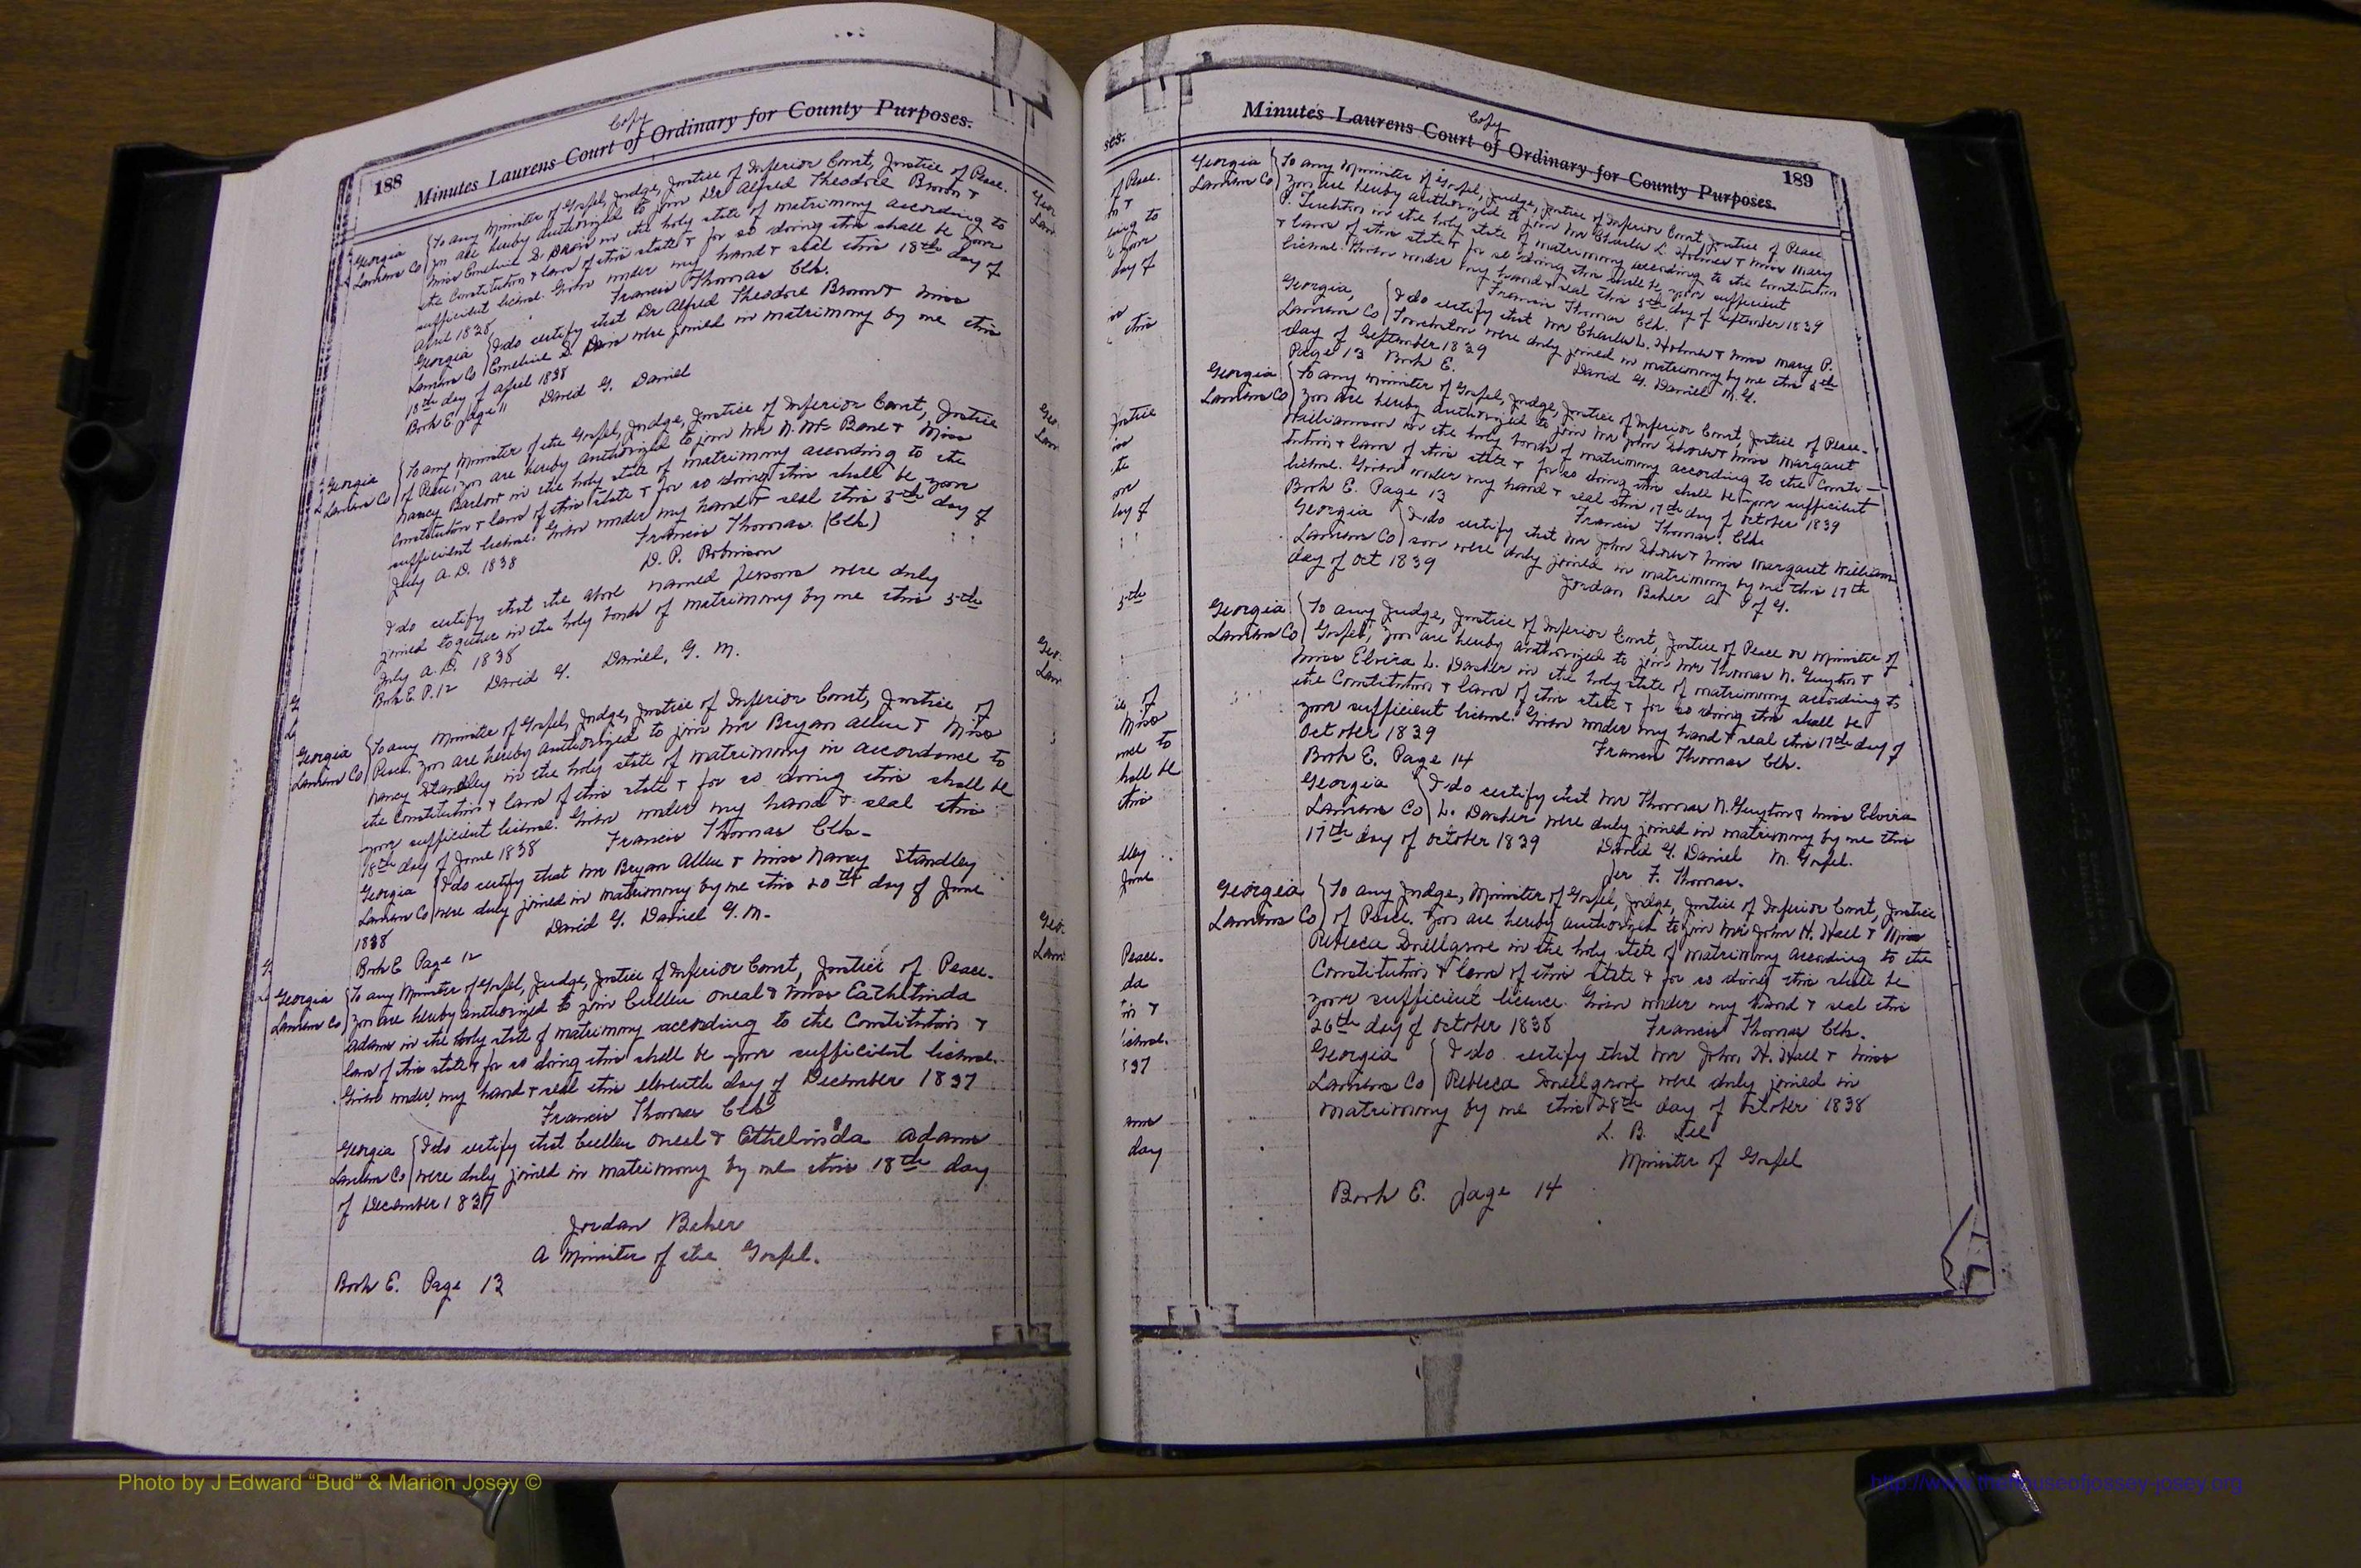 188
Copy
Minutes Laurens Court of Ordinary for County Purposes.
Georgia
Laurens Co
To any Minister of Gospel, Judge, Justice of Inferior Court, Justice of Peace.
you are hereby authorized to join Dr Alfred Theodore Brown &
Miss Emeline S. in the holy state of matrimony according to
the Constitution & laws of this state & for so doing this shall be your
sufficient license. Given under my hand & seal this 18th day of
April 1838 Francis Thomas Clk.
Georgia
Laurens Co
I do certify that Dr Alfred Theodore Brown & Miss
Emeline S. were joined in matrimony by me this
18th day of April 1838
Book E page 11 David G. Daniel
Georgia
Laurens Co
To any Minister of the Gospel, Judge, Justice of Inferior Court, Justice
of Peace, you are hereby authorized to join Mr N. Mc Bane & Miss
Nancy Barlow in the holy state of matrimony according to the
Constitution & laws of this state & for so doing this shall be your
sufficient license. Given under my hand & seal this 5th day of
July A.D. 1838 Francis Thomas (Clk)
D. P. Robinson
I do certify that the above named persons were duly
joined together in the holy bonds of matrimony by me this 5th
July A.D. 1838
Book E. P. 12 David G. Daniel, G. M.
Georgia
Laurens Co
To any Minister of Gospel, Judge, Justice of Inferior Court, Justice of
Peace. you are hereby authorized to join Mr Bryan Allen & Miss
Nancy Standley in the holy state of matrimony in accordance to
the Constitution & laws of this state & for so doing this shall be
your sufficient license. Given under my hand & seal this
18th day of June 1838 Francis Thomas Clk-
Georgia
Laurens Co
I do certify that Mr Bryan Allen & Miss Nancy Standley
were duly joined in matrimony by me this 20th day of June
1838 David G. Daniel G. M-
Book E Page 12
Georgia
Laurens Co
To any Minister of Gospel, Judge, Justice of Inferior Court, Justice of Peace.
you are hereby authorized to join Cullen Oneal & Miss Eathelinda
Adams in the holy state of matrimony according to the Constitution &
laws of this state & for so doing this shall be your sufficient license.
Given under my hand & seal this eleventh day of December 1837
Francis Thomas Clk
Georgia
Laurens Co
I do certify that Cullen Oneal & Ethelinda Adams
were duly joined in matrimony by me this 18th day
of December 1837
Jordan Baker
A Minister of the Gospel.
Book E. Page 13
Copy
Minutes Laurens Court of Ordinary for County Purposes.
189
Georgia
Laurens Co
To any Minister of Gospel, Judge, Justice of Inferior Court, Justice of Peace.
you are hereby authorized to join Mr Charles L. Holmes & Miss Mary
P. in the holy state of matrimony according to the Constitution
& laws of this state & for so doing this shall be your sufficient
license. Given under my hand & seal this 5th day of September 1839
Francis Thomas Clk.
Georgia,
Laurens Co
I do certify that Mr Charles L. Holmes & Miss Mary P.
were duly joined in matrimony by me this 5th
day of September 1839 David G. Daniel M. G.
Page 13 Book E.
Georgia
Laurens Co
To any Minister of Gospel, Judge, Justice of Inferior Court, Justice of Peace.
you are hereby authorized to join Mr John & Miss Margaret
Williamson in the holy bonds of matrimony according to the Consti-
tution & laws of this state & for so doing this shall be your sufficient
license. Given under my hand & seal this 17th day of October 1839
Book E. Page 13 Francis Thomas. Clk
Georgia
Laurens Co
I do certify that Mr John & Miss Margaret William
son were duly joined in matrimony by me this 17th
day of Oct 1839 Jordan Baker
Georgia
Laurens Co
To any Judge, Justice of Inferior Court, Justice of Peace or Minister of
Gospel, you are hereby authorized to join Mr Thomas N. Guyton &
Miss Elvira L. Dasher in the holy state of matrimony according to
the Constitution & laws of this state & for so doing this shall be
your sufficient license. Given under my hand & seal this 17th day of
October 1839 Francis Thomas Clk.
Book E. Page 14
Georgia
Laurens Co
I do certify that Mr Thomas N. Guyton & Miss Elvira
L. Dasher were duly joined in matrimony by me this
17th day of October 1839 David G. Daniel M. Gospel.
Per F. Thomas.
Georgia
Laurens Co
To any Judge, Minister of Gospel, Judge, Justice of Inferior Court, Justice
of Peace. you are hereby authorized to join Mr John H. Hall & Miss
Rebecca Snellgrove in the holy state of matrimony according to the
Constitution & laws of this state & for so doing this shall be
your sufficient licence. Given under my hand & seal this
26th day of October 1838 Francis Thomas Clk.
Georgia
Laurens Co
I do certify that Mr John H. Hall & Miss
Rebecca Snellgrove were duly joined in
matrimony by me this 28th day of October 1838
L. B. Lee
Minister of Gospel
Book E. page 14
Photo by J Edward “Bud” & Marion Josey ©
http://www.thehouseofjossey-josey.org